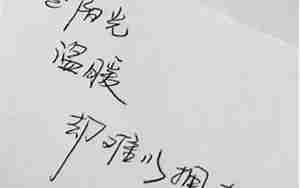 阳光
温暖
却难以拥